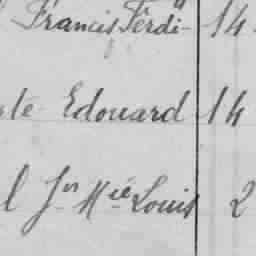 Francis Ferdi- 14
te Edouard 14
l Jn Mie Louis 2